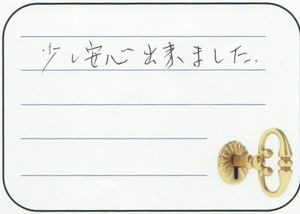 少し安心出来ました.